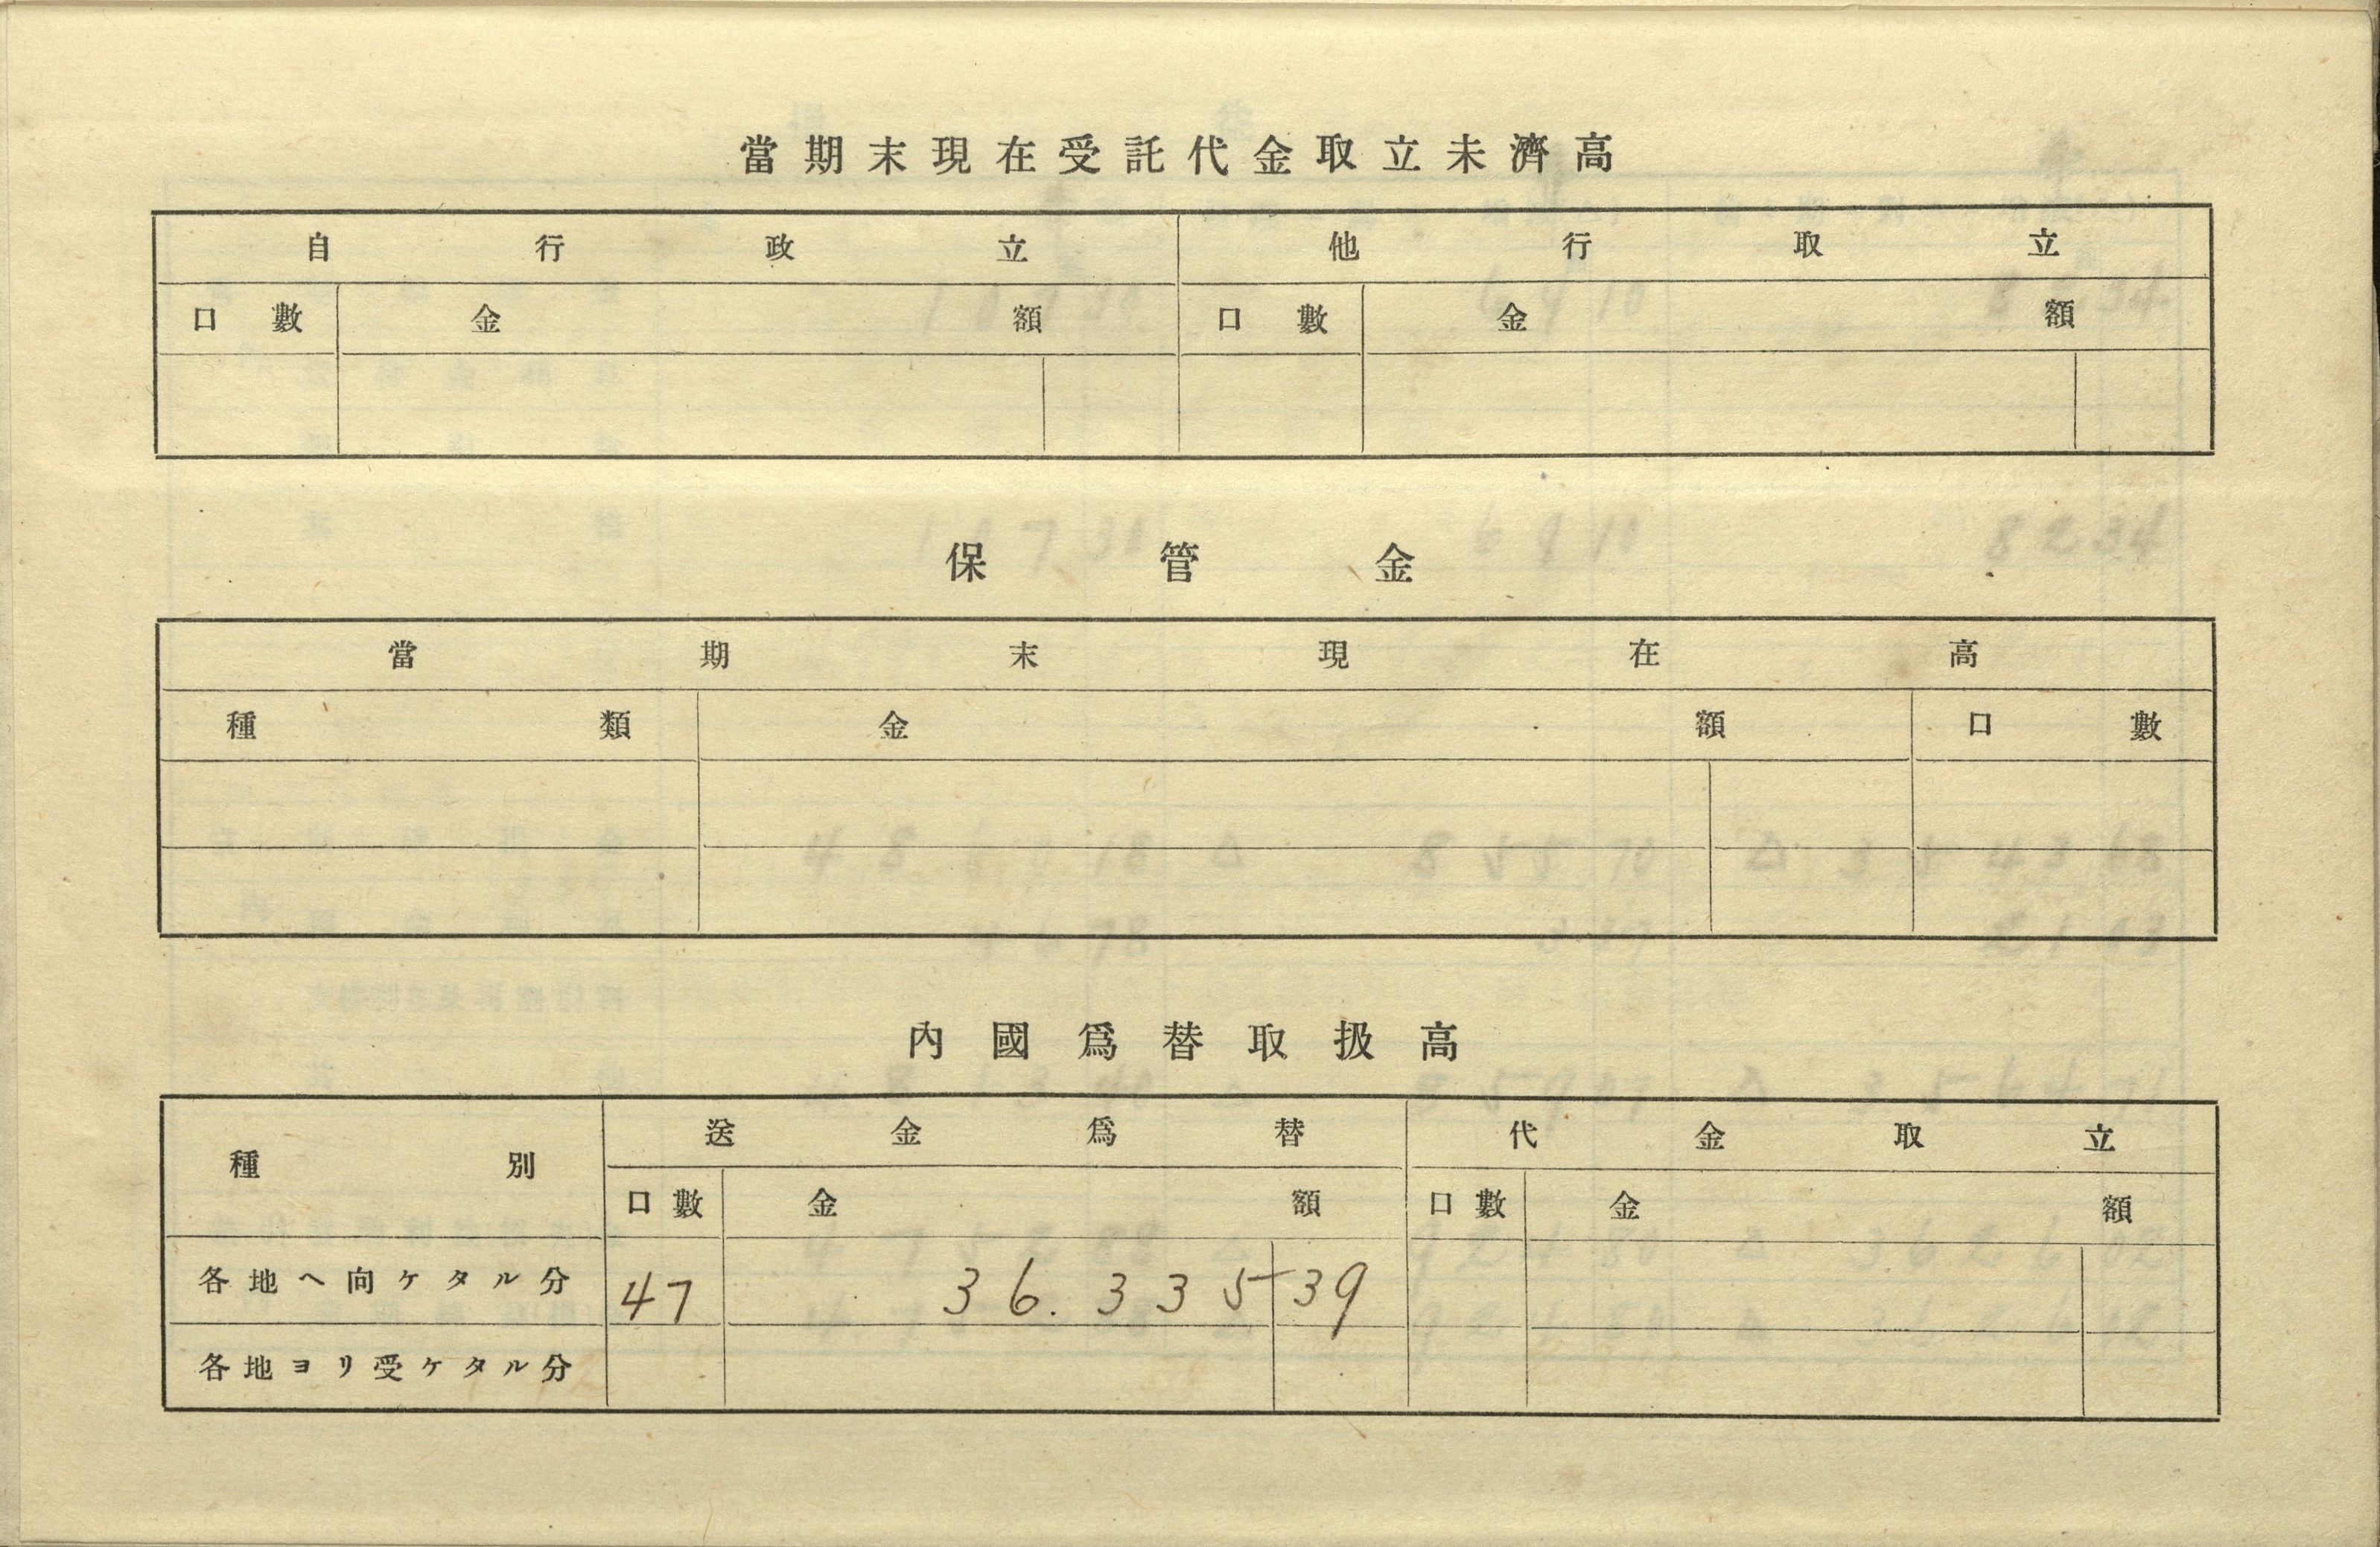 當期末現在受託代金取立未濟高
自行政立 他行取立
口數 金額 口數 金額
保管金
當期末現在高
種類 金額 口數
內國爲替取扱高
種別 送金爲替 代金取立
口數 金額 口數 金額
各地ヘ向ケタル分 47 36.335 39
各地ヨリ受ケタル分